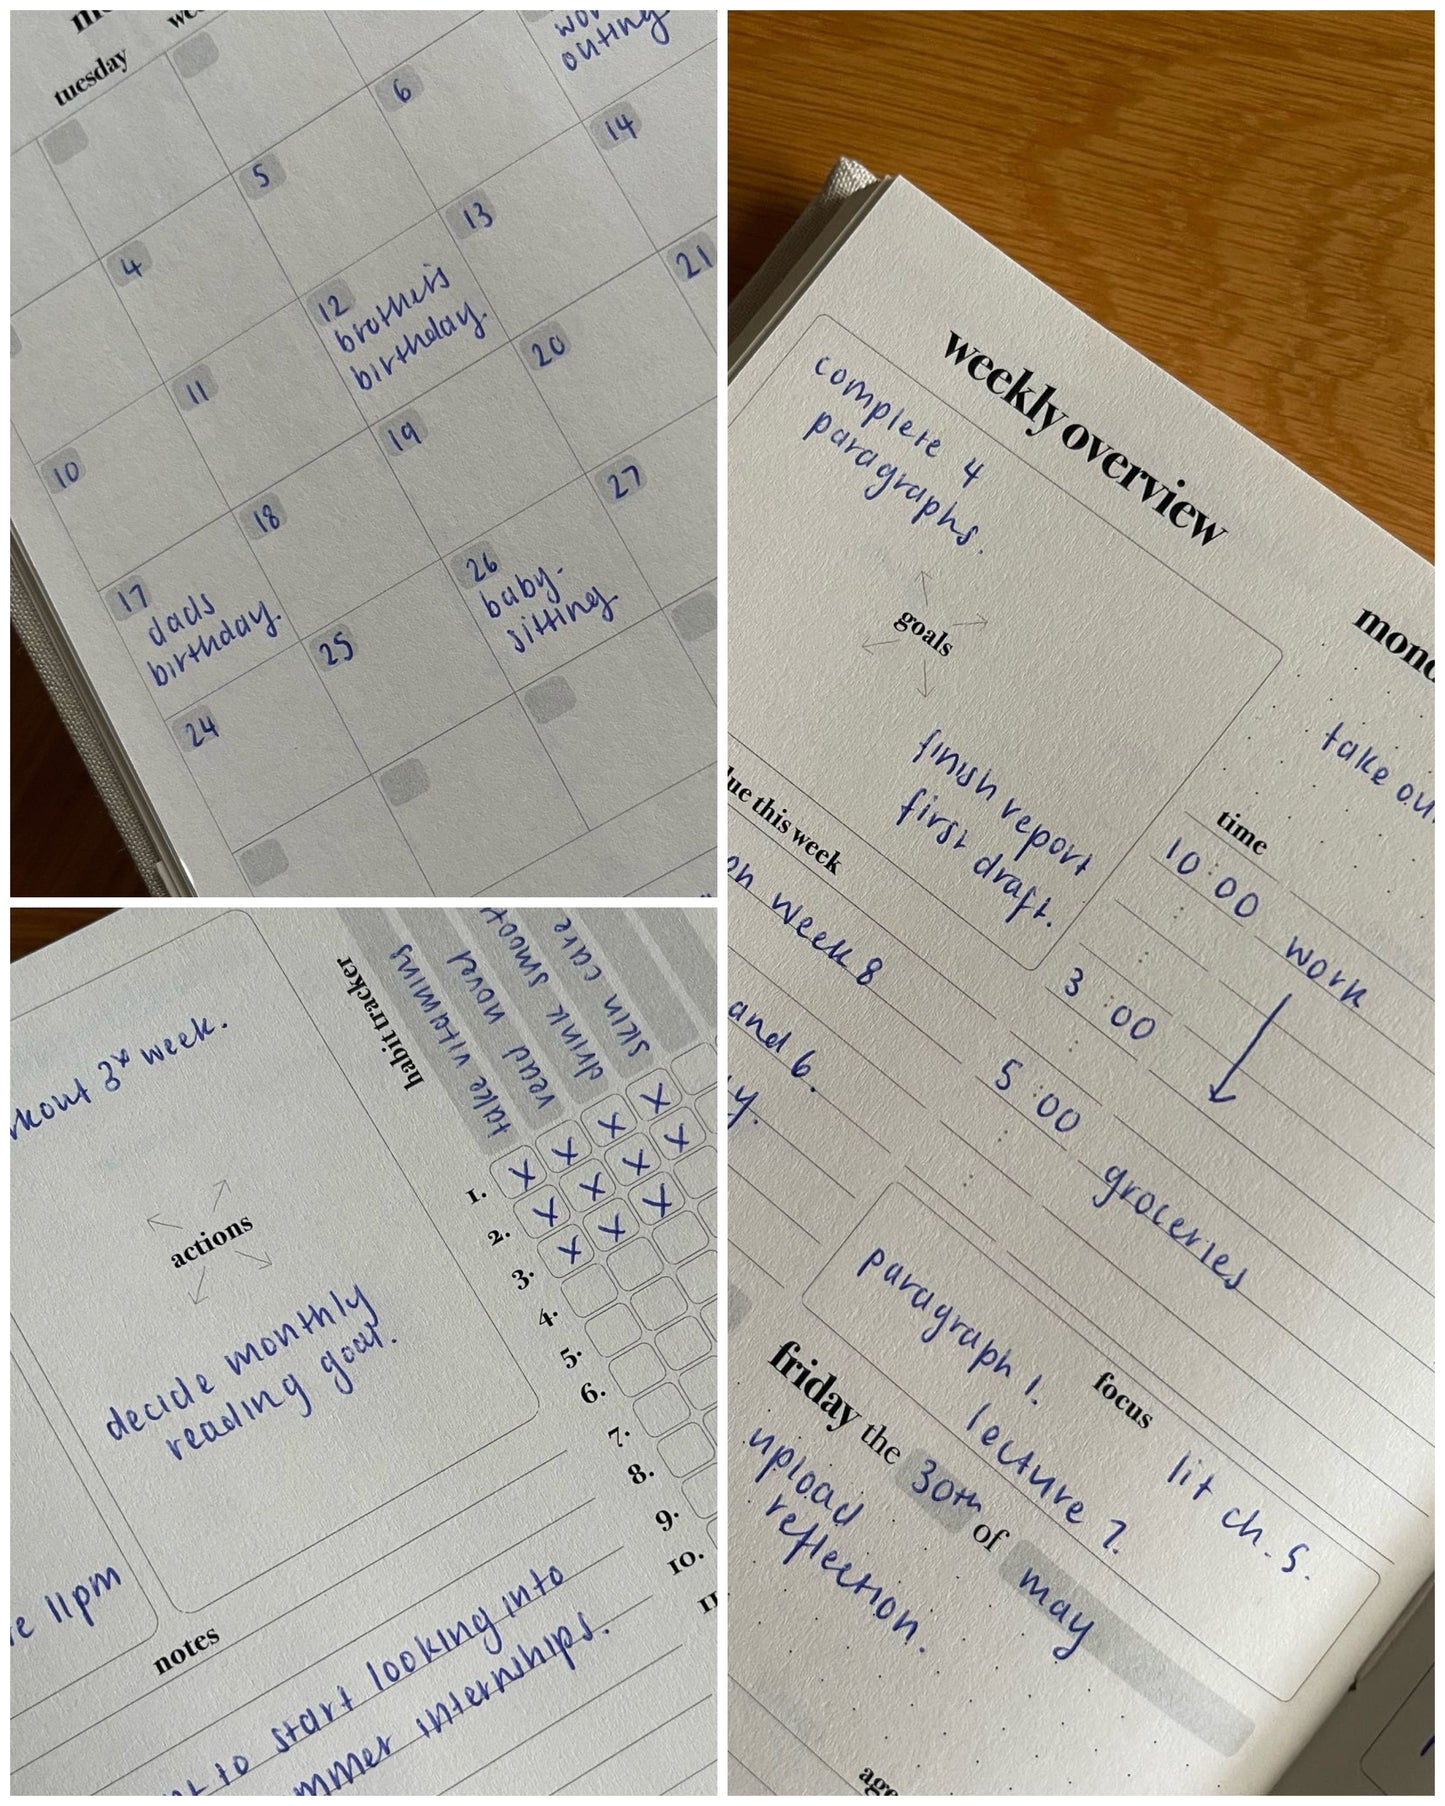 tuesday
outing
6
14
5
13
4
12
brother's
birthday.
21
11
20
10
19
18
27
17
dads
birthday.
26
baby-
sitting.
25
24
3x week.
actions
decide monthly
reading goal.
11pm
notes
to start looking into
internships.
habit tracker
take vitamins
read novel
drink
skin care
1. X X X X
2. X X X X
3. X X X
4.
5.
6.
7.
8.
9.
10.
weekly overview
complete 4
paragraphs.
goals
finish report
first draft.
this week
week 8
and 6.
take
time
10:00
work
3:00
5:00
groceries
paragraph 1.
focus
lecture 7.
lit ch. 5.
friday the 30th of may
upload
reflection.